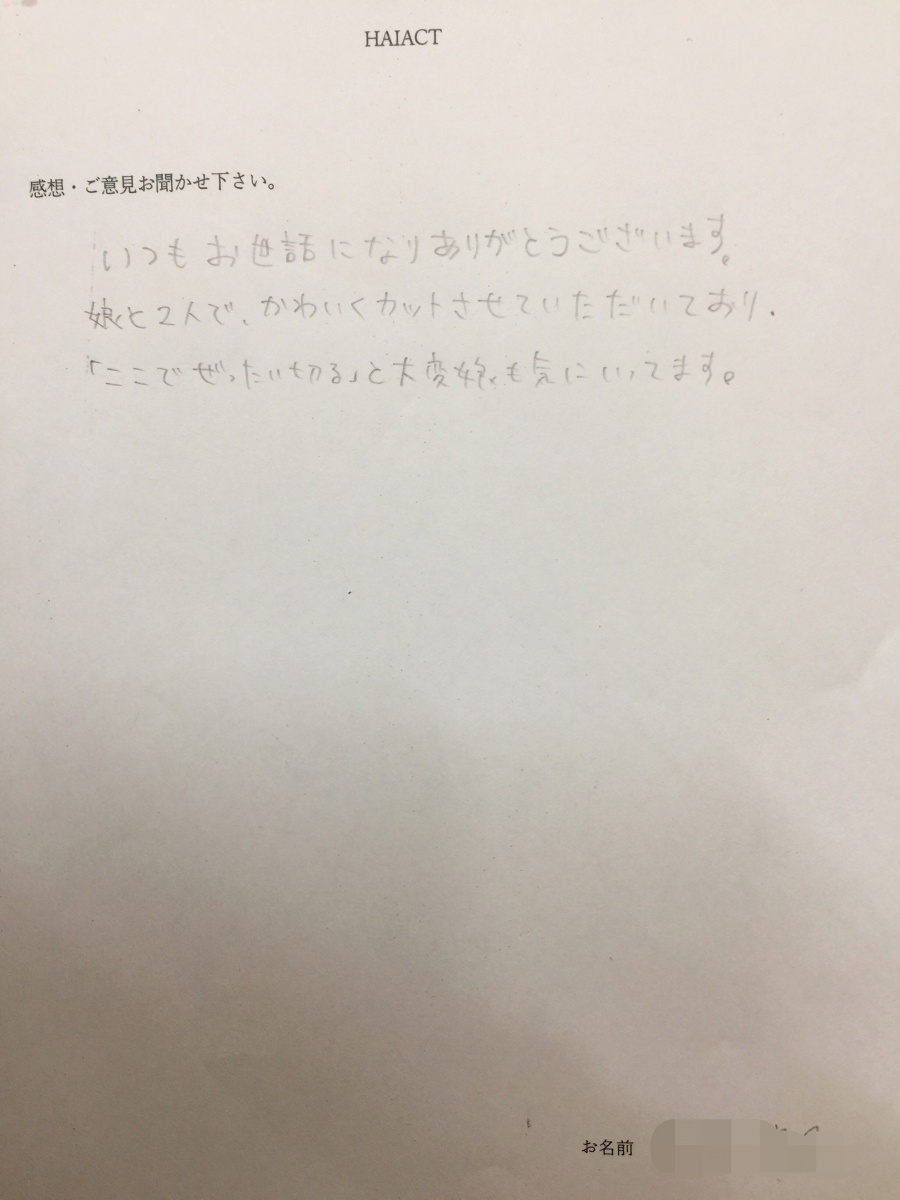 HAIACT
感想・ご意見お聞かせ下さい。
いつもお世話になりありがとうございます。
娘と2人で、かわいくカットさせていただいており、
「ここでぜったい切る」と大変娘も気にいってます。
お名前